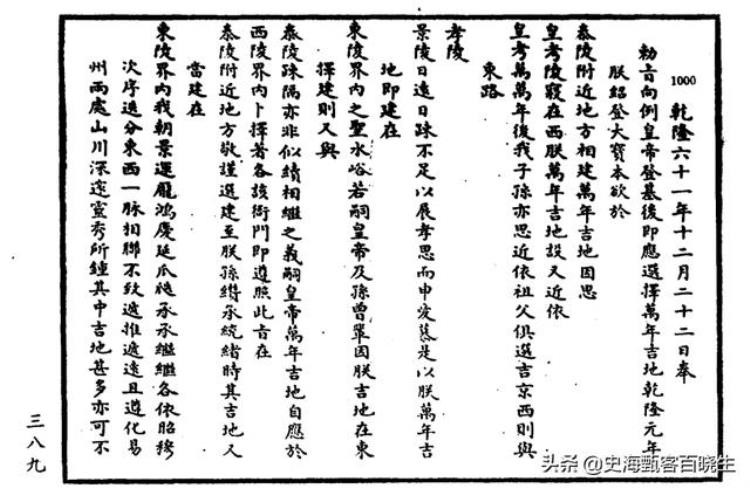 1000 乾隆六十一年十二月二十二日奉
勅旨向例皇帝登基後即應選擇萬年吉地乾隆元年
朕紹登大寶本欲於
泰陵附近地方相建萬年吉地因思
皇考陵寢在西朕萬年吉地設又近依
皇考萬萬年後我子孫亦思近依祖父俱選吉京西則與
東路
孝陵
景陵日遠日疎不足以展孝思而申愛慕是以朕萬年吉
地即建在
東陵界內之聖水峪若嗣皇帝及孫曾輩因朕吉地在東
擇建則又與
泰陵疎隔亦非似續相繼之義嗣皇帝萬年吉地自應於
西陵界內卜擇著各該衙門即遵照此旨在
泰陵附近地方敬謹選建至朕孫纘承統緒時其吉地又
當建在
東陵界內我朝景運龐鴻慶延瓜瓞承承繼繼各依昭穆
次序迭分東西一脈相聯不致遞推遞遠且遵化易
州兩處山川深邃靈秀所鍾其中吉地甚多亦可不
三八九
头条 @史海甄客百晓生